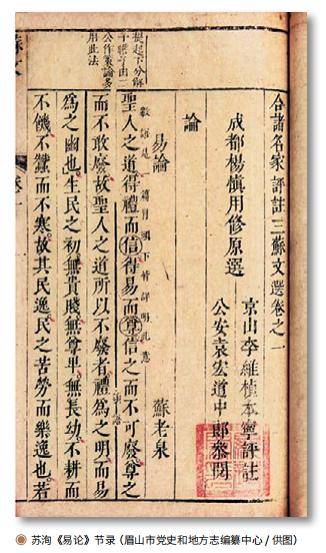 合諸名家評註三蘇文選卷之一
成都楊慎用修原選
京山李維楨本寧評註
公安袁宏道中郎參閱
論
易論 蘇老泉
數語是一篇冒頭下皆詳明此意
聖人之道得禮而信得易而尊信之而不可廢尊之
而不敢廢故聖人之道所以不廢者禮爲之明而易
爲之幽也生民之初無貴賤無尊卑無長幼不耕而
不饑不蠶而不寒故其民逸民之苦勞而樂逸也若
提起下分解
公作策論多
用此法
蘇文
卷一
苏洵《易论》节录（眉山市党史和地方志编纂中心 / 供图）